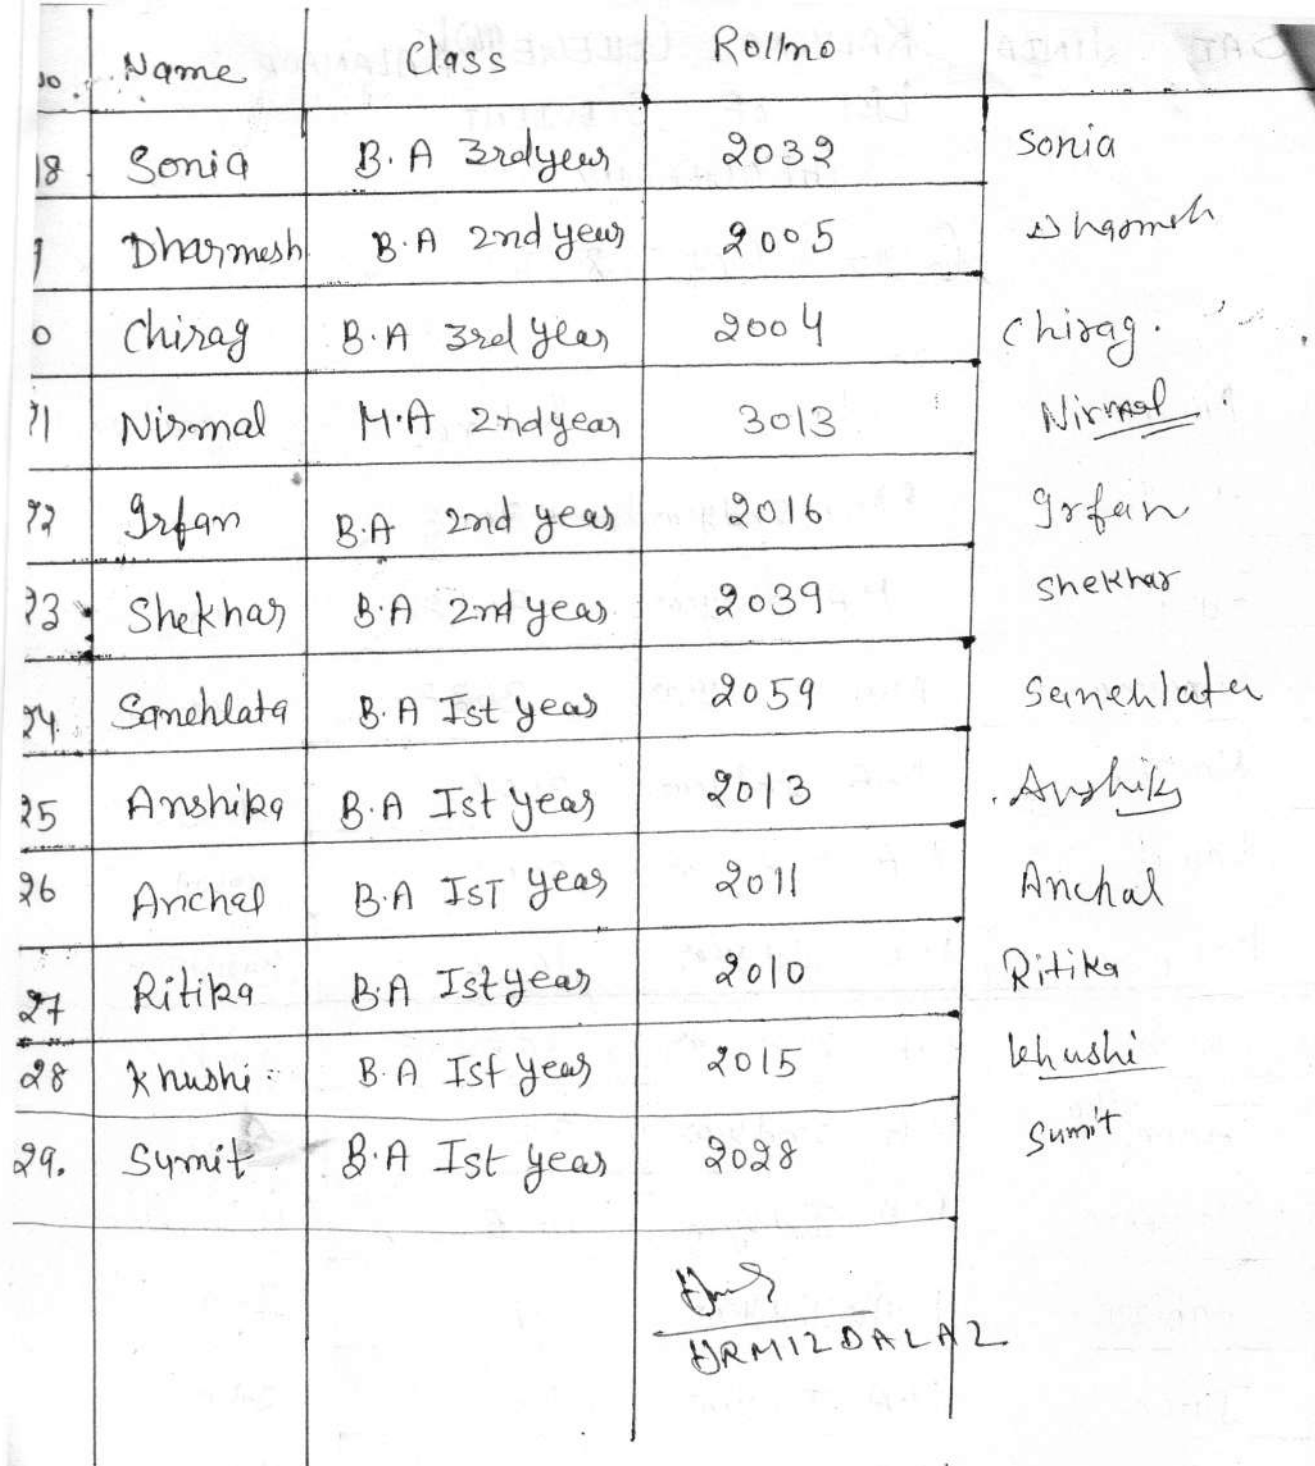 No Name Class Rollno
18 Sonia B.A 3rd year 2032 Sonia
Dharmesh B.A 2nd year 2005 Dharmesh
0 Chirag B.A 3rd year 2004 Chirag.
21 Nirmal M.A 2nd year 3013 Nirmal
22 Irfan B.A 2nd year 2016 Irfan
23 Shekhar B.A 2nd year 2039 Shekhar
24. Sanehlata B.A Ist year 2059 Sanehlata
25 Anshika B.A Ist year 2013 Anshika
26 Anchal B.A IST year 2011 Anchal
27 Ritika B.A Ist year 2010 Ritika
28 Khushi B.A Ist year 2015 Khushi
29. Sumit B.A Ist year 2028 Sumit